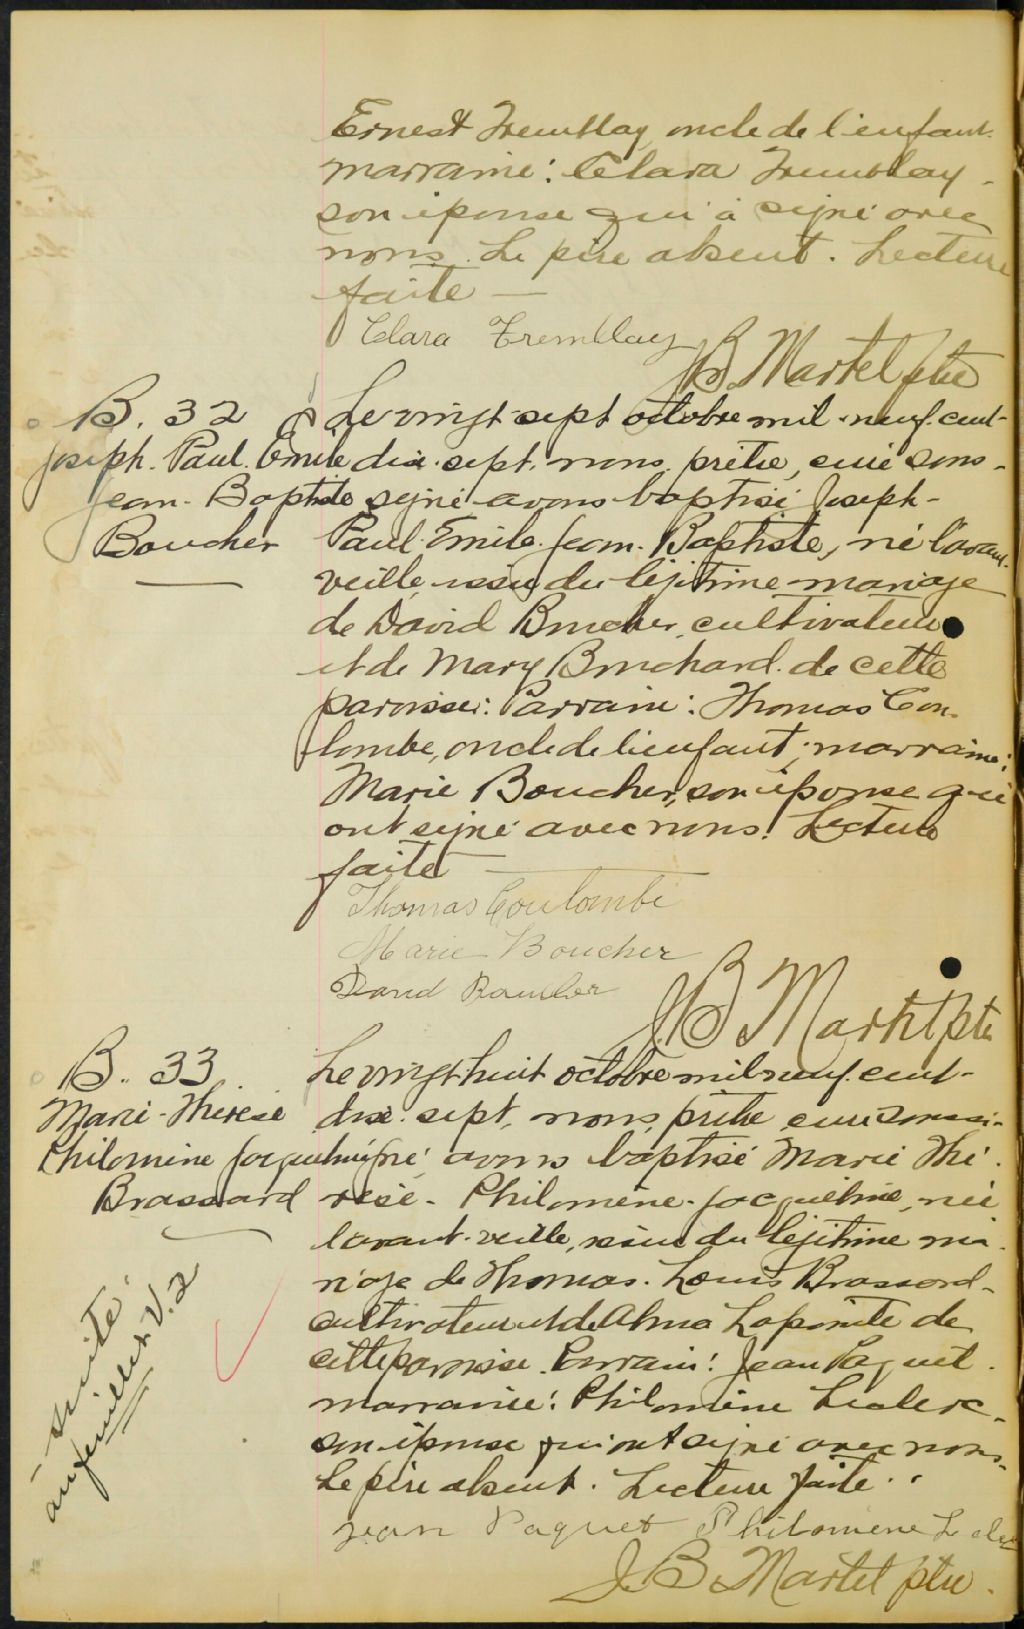 Ernest Tremblay, oncle de l'enfant.
marraine: Clara Tremblay -
son épouse qui a signé avec
nous. Le père absent. Lecture
faite —
Clara Tremblay
J.B. Martel ptre
B. 32
Joseph. Paul. Emile
Jean-Baptiste
Boucher
Le vingt-sept octobre mil-neuf-cent-
dix-sept, nous, prêtre, curé sous-
signé avons baptisé Joseph-
Paul. Emile. Jean-Baptiste, né l'avant-
veille, issu du légitime mariage
de David Boucher, cultivateur
et de Mary Bouchard. de cette
paroisse: Parrain: Thomas Cou-
lombe, oncle de l'enfant; marraine:
Marie Boucher, son épouse qui
ont signé avec nous. Lecture
faite —
Thomas Coulombe
Marie Boucher
David Boucher
J.B. Martel ptre
B. 33
Marie-Thérèse
Philomène Jacqueline
Brassard
Le vingt huit octobre mil neuf-cent-
dix-sept, nous, prêtre curé soussi-
gné, avons baptisé Marie Thé-
rèse - Philomène - Jacqueline, née
l'avant-veille, issue du légitime ma-
riage de Thomas-Louis Brassard-
cultivateur et de Alma Lapointe de
cette paroisse. Parrain: Jean Paquet.
marraine: Philomène Leclerc -
son épouse qui ont signé avec nous.
Le père absent. Lecture faite.
Jean Paquet Philomène Leclerc
J.B. Martel ptre.
- suite
au feuillet V.2